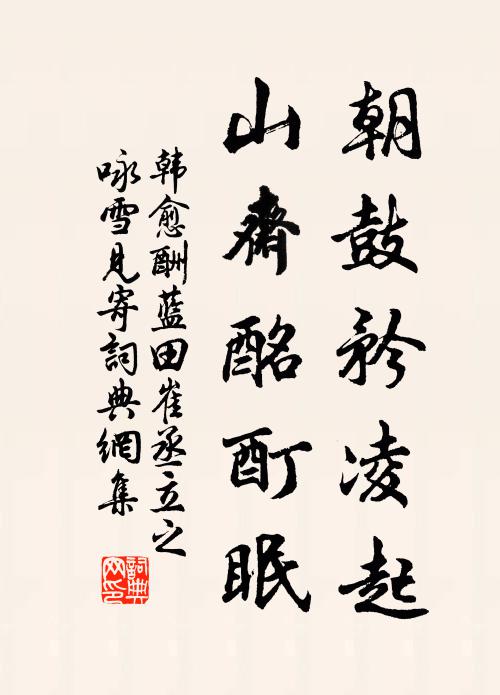 朝鼓矜凌起
山齋酩酊眠
韩愈酬蓝田崔丞立之
咏雪見寄詞典網集
詞典网印